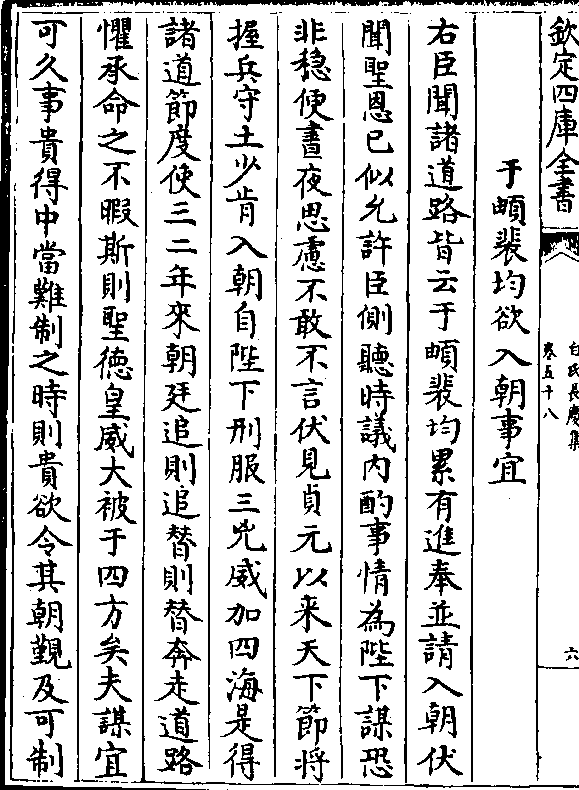 欽定四庫全書
白氏長慶集
卷五十八
六
于頔裴均欲入朝事宜
右臣聞諸道路皆云于頔裴均累有進奉並請入朝伏
聞聖恩已似允許臣側聽時議內酌事情為陛下謀恐
非穩便晝夜思慮不敢不言伏見貞元以来天下節將
握兵守土少肯入朝自陛下刑服三兇威加四海是得
諸道節度使三二年來朝廷追則追替則替奔走道路
懼承命之不暇斯則聖德皇威大被于四方矣夫謀宜
可久事貴得中當難制之時則貴欲令其朝覲及可制